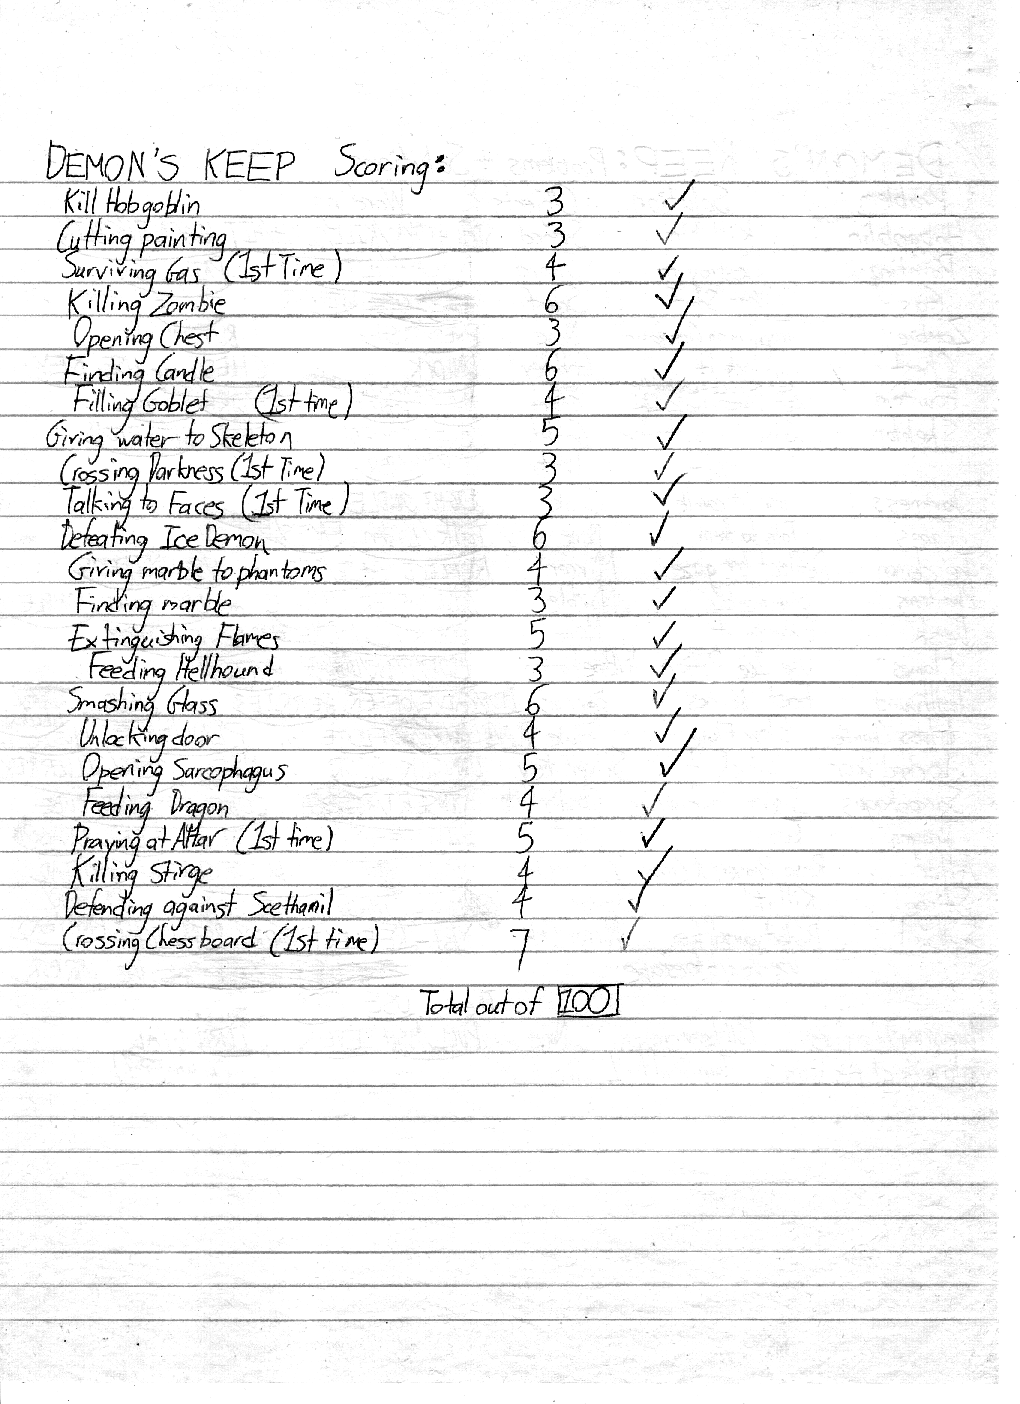 DEMON'S KEEP Scoring:
Kill Hobgoblin 3 ✓
Cutting painting 3 ✓
Surviving Gas (1st Time) 4 ✓
Killing Zombie 6 ✓
Opening Chest 3 ✓
Finding Candle 6 ✓
Filling Goblet (1st time) 4 ✓
Giving water to Skeleton 5 ✓
Crossing Darkness (1st Time) 3 ✓
Talking to Faces (1st Time) 3 ✓
Defeating Ice Demon 6 ✓
Giving marble to phantoms 4 ✓
Finding marble 3 ✓
Extinguishing Flames 5 ✓
Feeding Hellhound 3 ✓
Smashing Glass 6 ✓
Unlocking door 4 ✓
Opening Sarcophagus 5 ✓
Feeding Dragon 4 ✓
Praying at Altar (1st time) 5 ✓
Killing Stirge 4 ✓
Defending against Scethanil 4 ✓
Crossing Chessboard (1st time) 7 ✓
Total out of 100